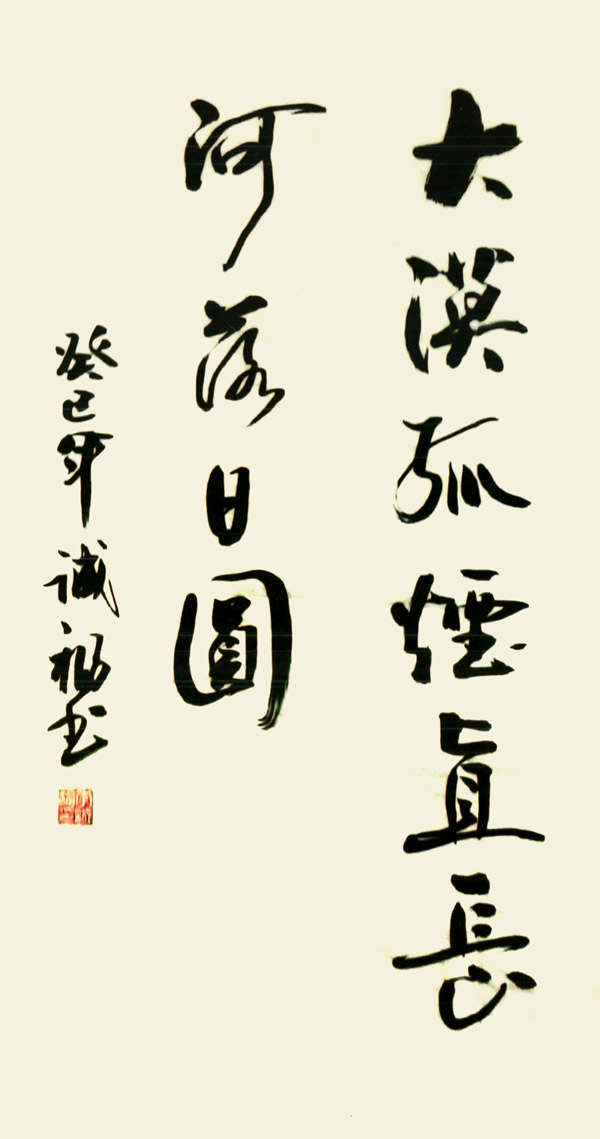 大漠孤煙直長
河落日圓
癸巳年 诚福书